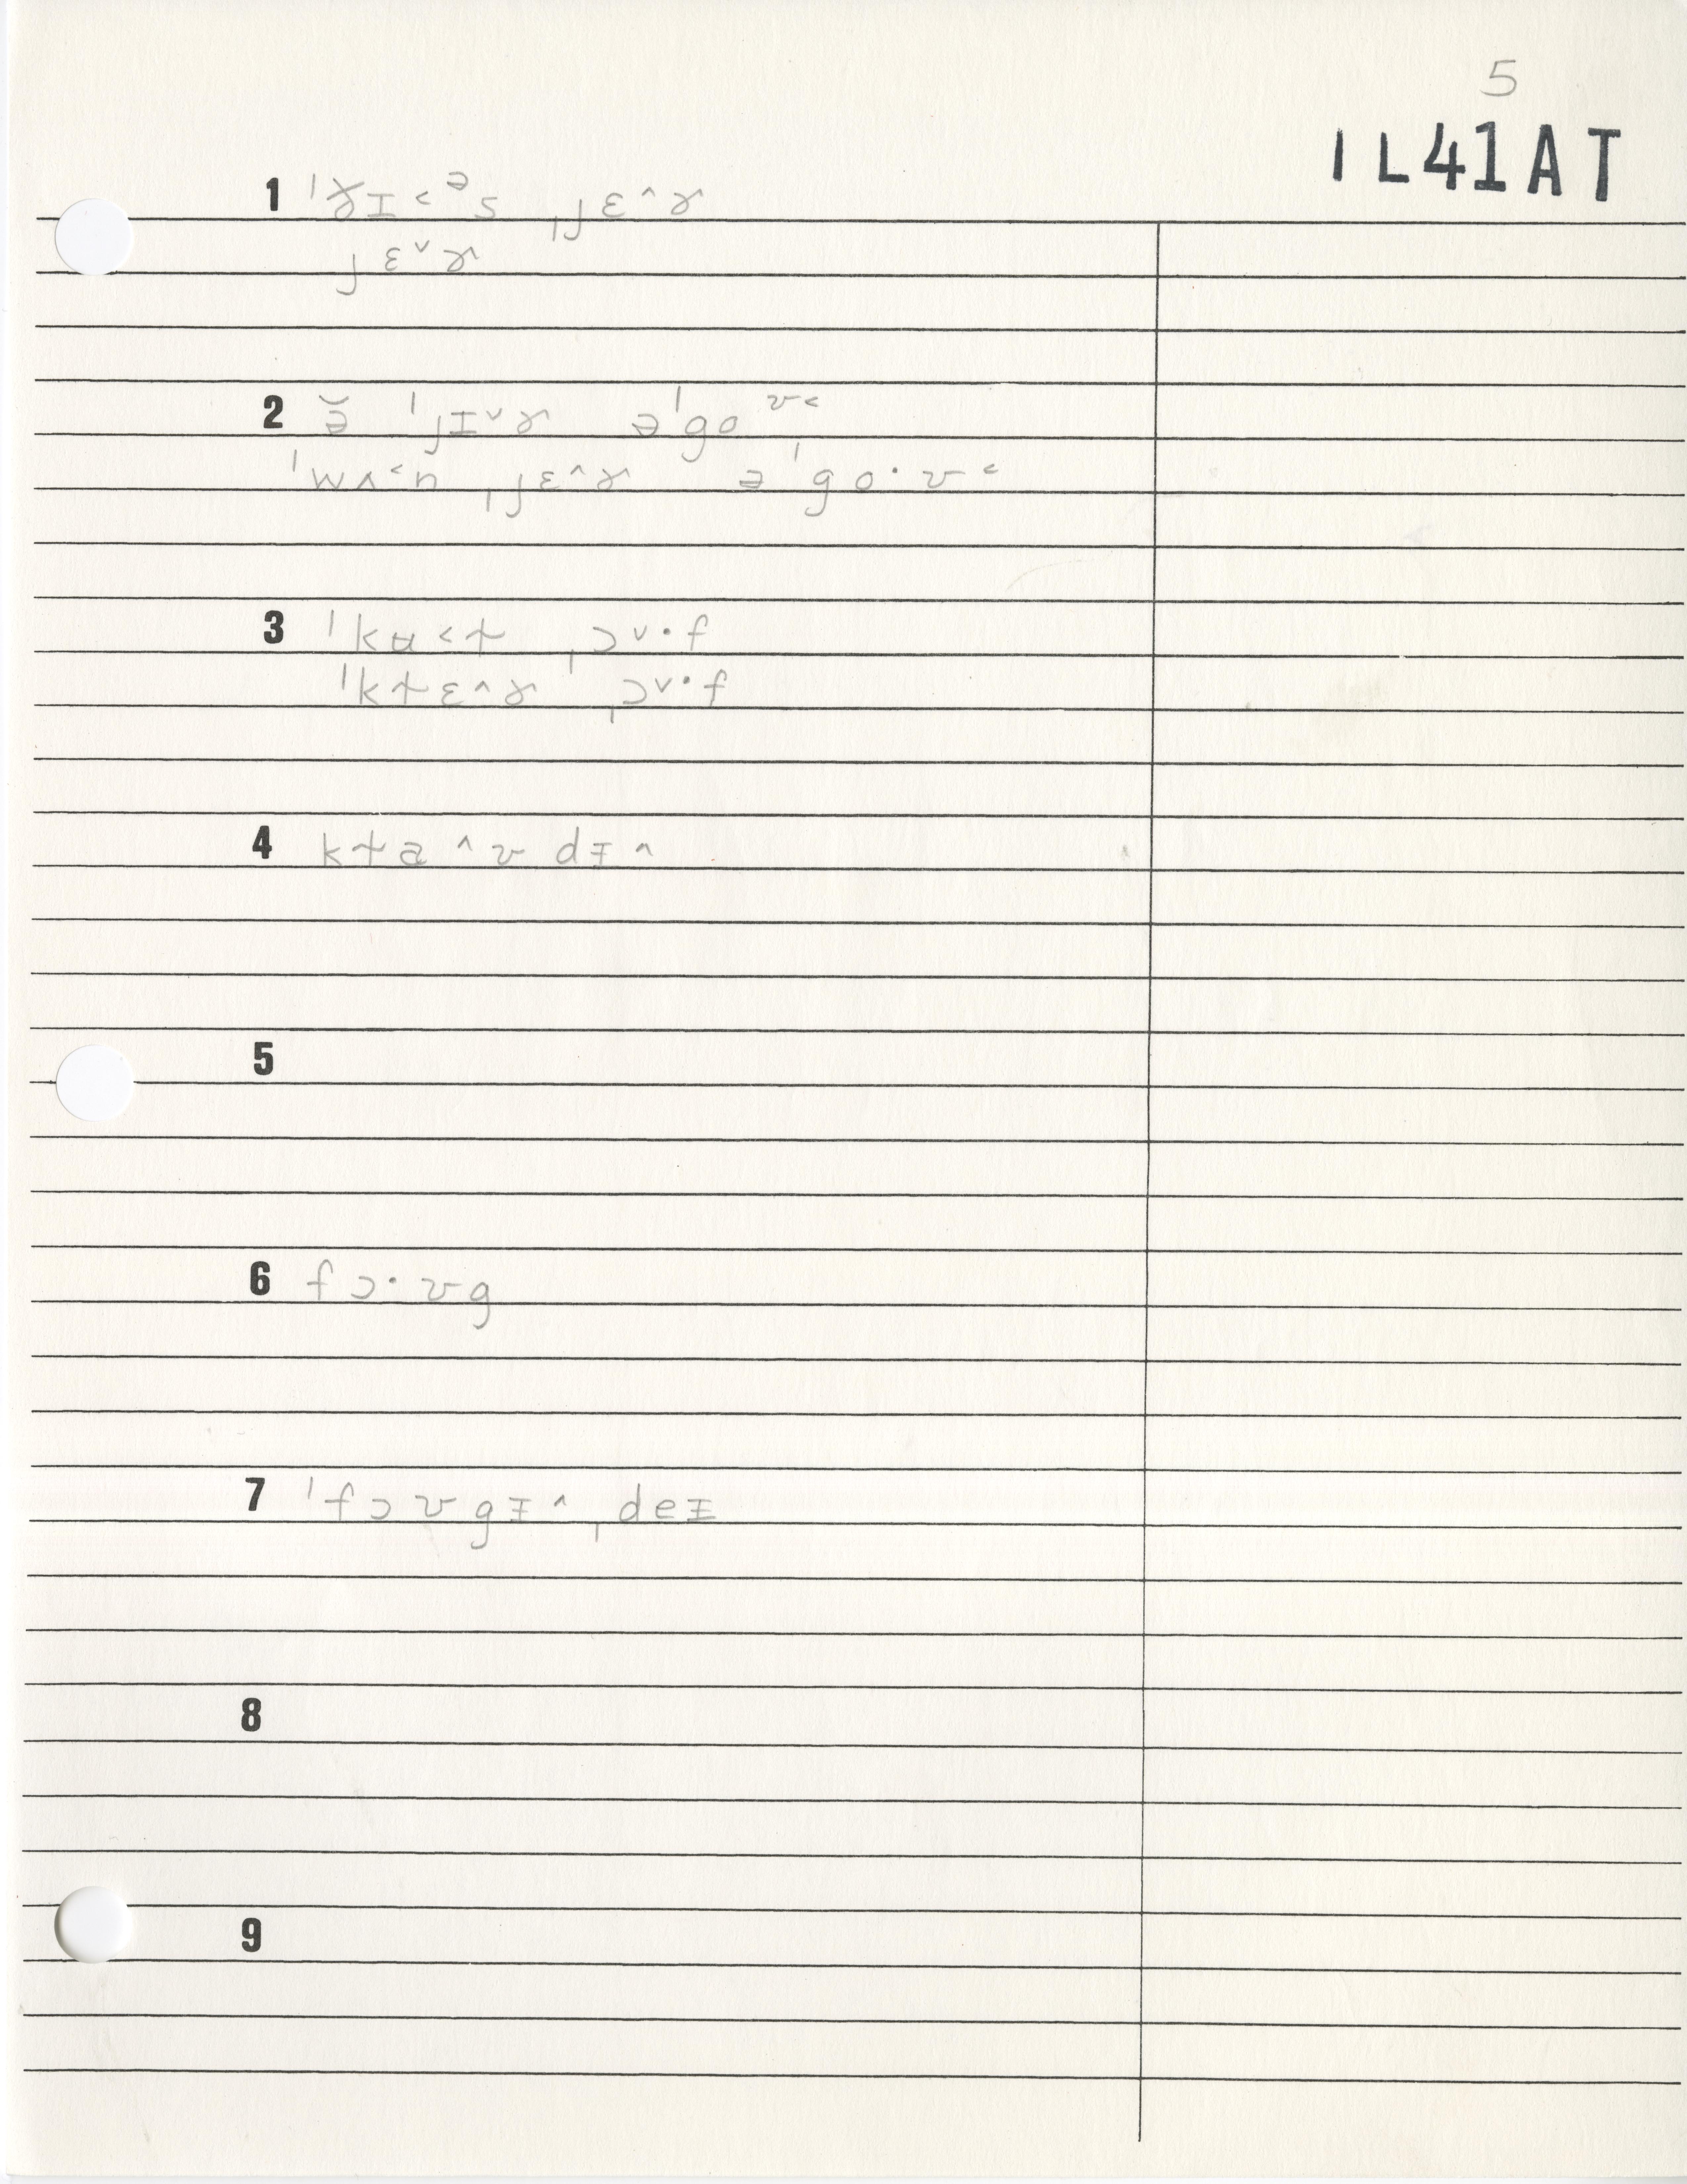 5
IL41AT
1 ˈɣ̵ɪ˂ᵊs ˌjɛ˄ɤ
jɛ˅ɤ
2 ə̆ ˈjɪ˅ɤ əˈgo ʊ˂
ˈwʌ˂n ˌjɛ˄ɤ əˈgo·ʊ˂
3 ˈkʉ˂ɫ ˌɔ˅·f
ˈkɫɛ˄ɤ ˌɔ˅·f
4 kɫa˄ʊdɪ˄
5
6 fɔ·ʊg
7 ˈfɔʊgɪ˄ˌdeɪ
8
9